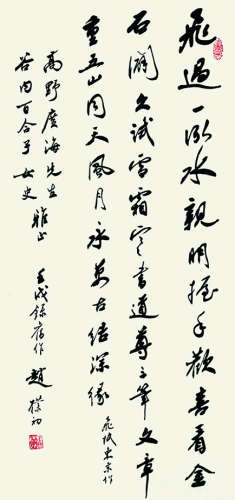 飛過一泓水親朋握手歡喜看金
石久試雪霜寒書道尊三筆文章
重五山同天風月永萬古結深緣 飛抵東京作
高野廣海先生
谷内百合子女史 雅正
壬戌錄舊作 趙樸初